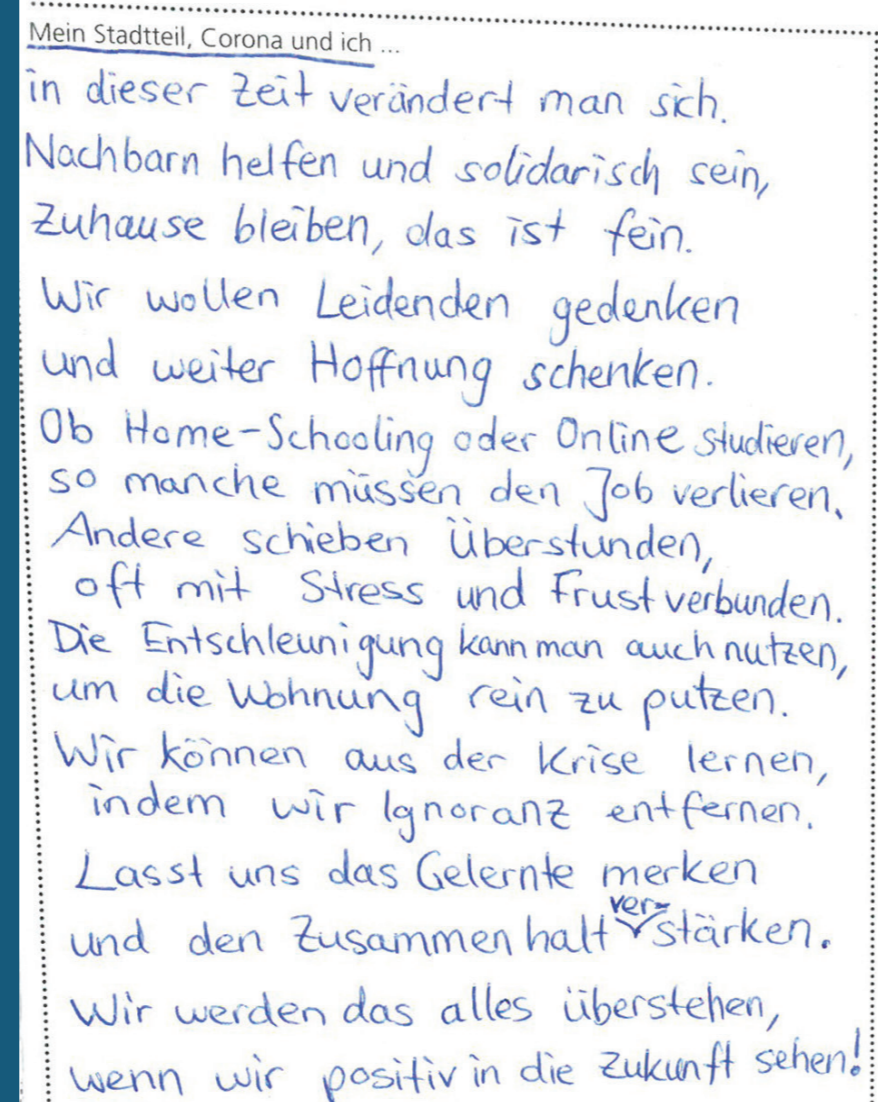 Mein Stadtteil, Corona und ich ...
in dieser Zeit verändert man sich.
Nachbarn helfen und solidarisch sein,
Zuhause bleiben, das ist fein.
Wir wollen Leidenden gedenken
und weiter Hoffnung schenken.
Ob Home-Schooling oder Online studieren,
so manche müssen den Job verlieren.
Andere schieben Überstunden,
oft mit Stress und Frust verbunden.
Die Entschleunigung kann man auch nutzen,
um die Wohnung rein zu putzen.
Wir können aus der Krise lernen,
indem wir Ignoranz entfernen.
Lasst uns das Gelernte merken
und den Zusammenhalt verstärken.
Wir werden das alles überstehen,
wenn wir positiv in die Zukunft sehen!